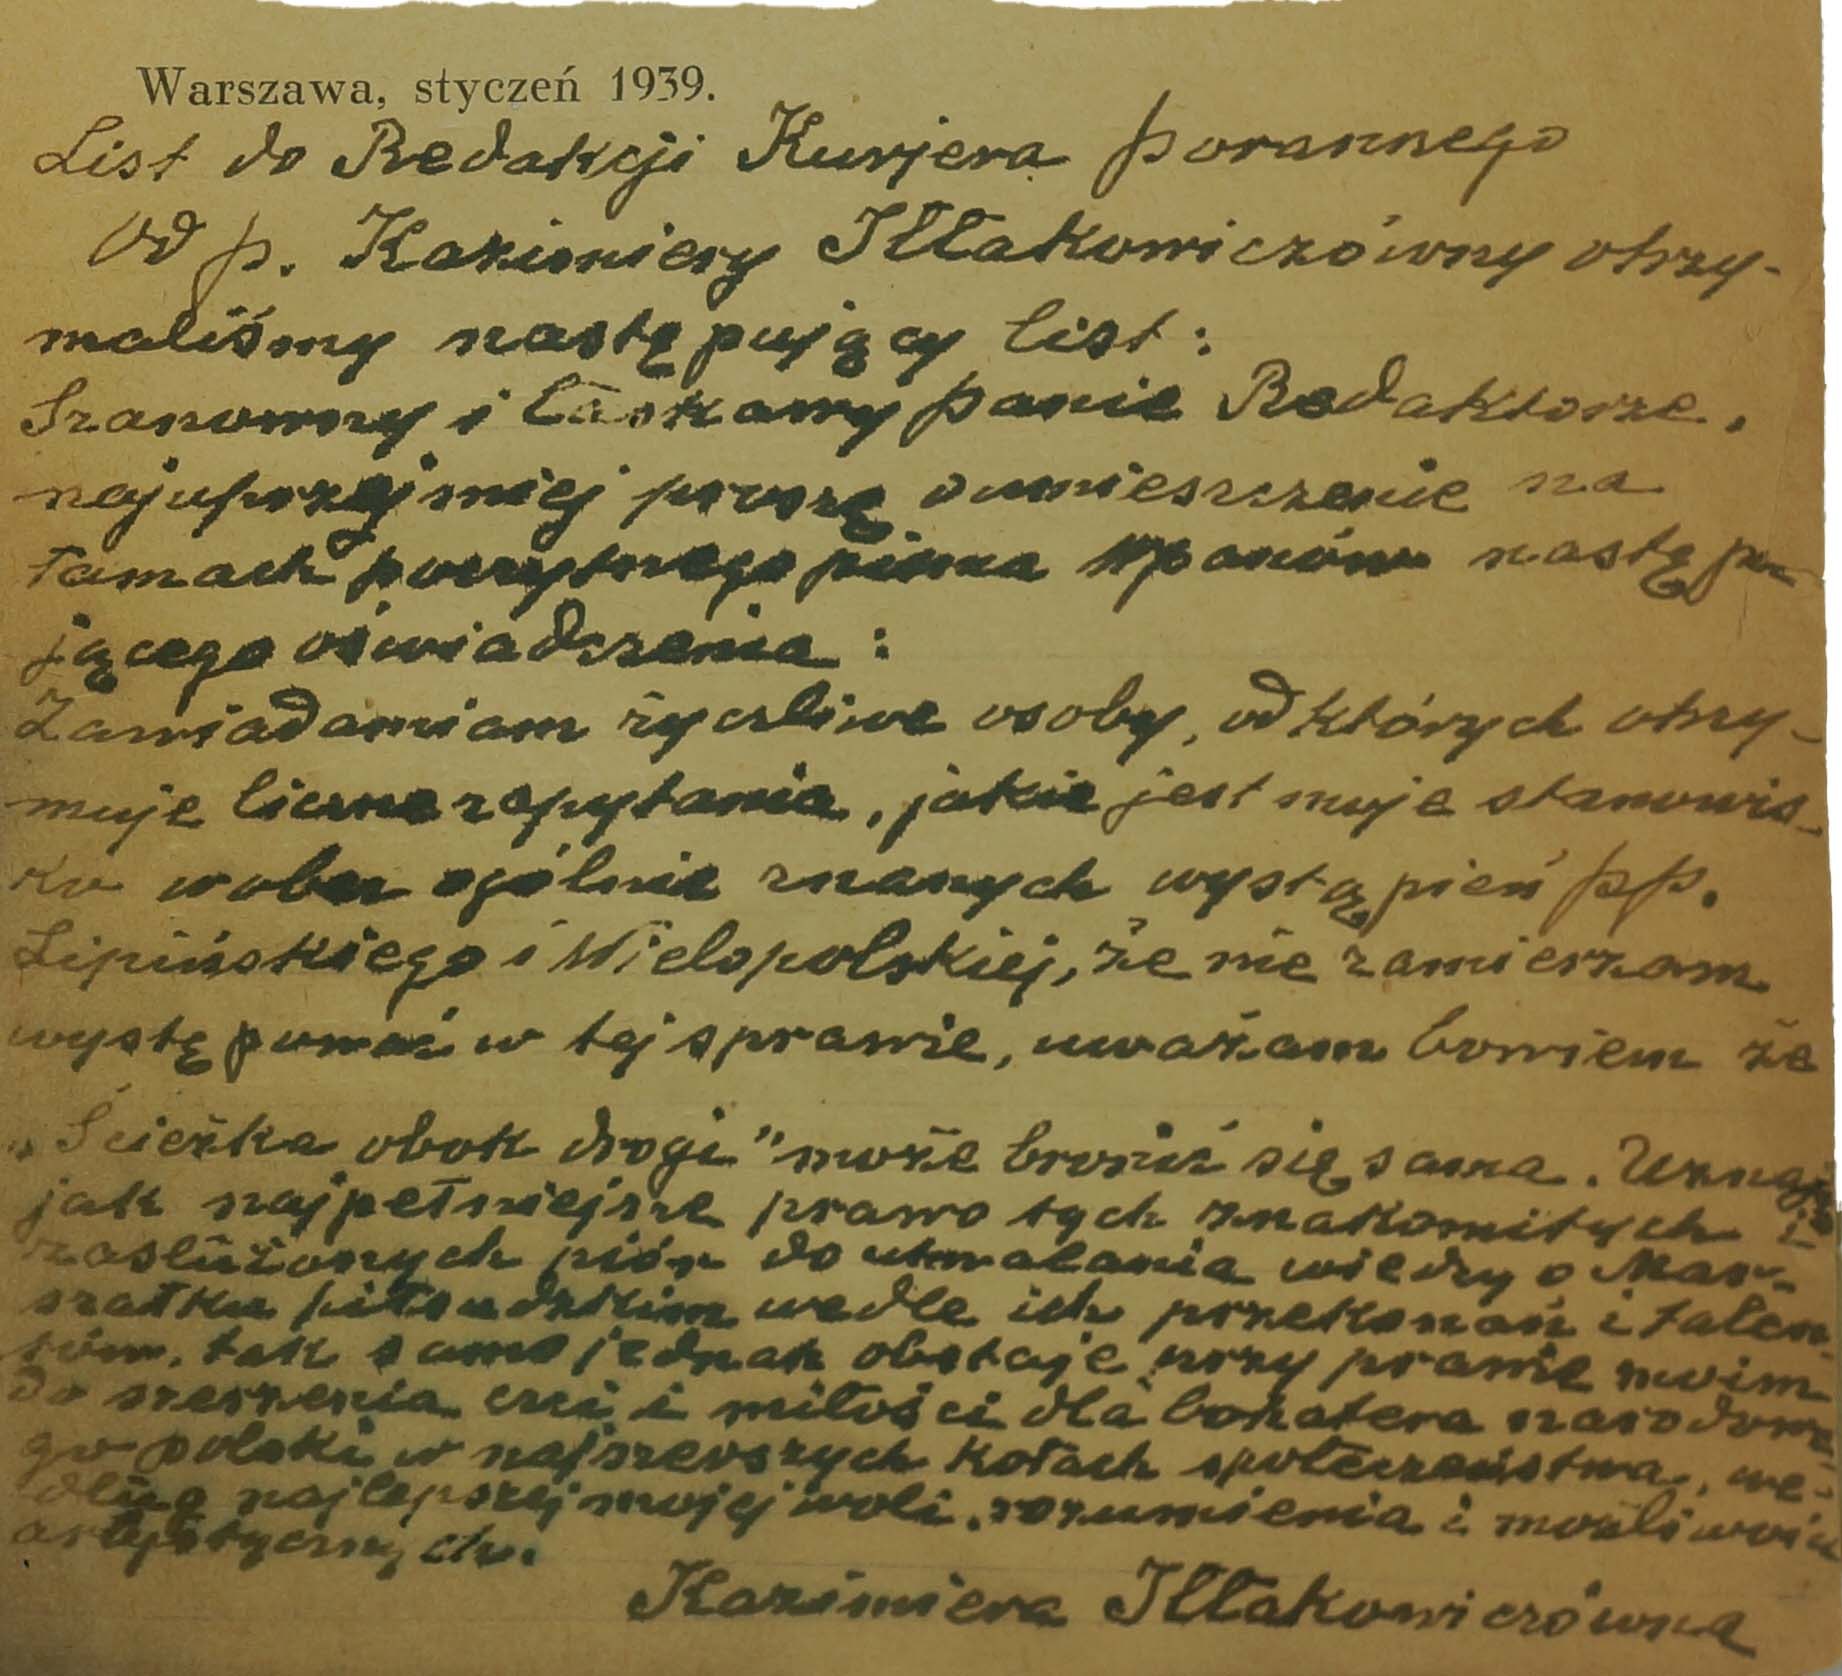 Warszawa, styczeń 1939.
List do Redakcji Kurjera porannego
Od p. Kazimiery Iłłakowiczówny otrzy-
maliśmy następujący list:
Szanowny i łaskawy panie Redaktorze,
najuprzejmiej proszę o umieszczenie na
łamach poczytnego pisma Panów następu
jącego oświadczenia:
Zawiadamiam życzliwe osoby, od których otrzy-
muje liczne zapytania, jakie jest moje stanowis-
ko wobec ogólnie znanych wystąpień pp.
Lipińskiego i Wielopolskiej, że nie zamierzam
występować w tej sprawie, uważam bowiem że
„Ścieżka obok drogi" może bronić się sama. Uznaję
jak najpełniejsze prawo tych znakomitych i
zasłużonych piór do utrwalania wiedzy o Mar-
szałku piłsudzkim wedle ich przekonań i talen-
tów, tak samo jednak obstaje przy prawie moim
do szerzenia czci i miłości dla bohatera narodowe
go polski w najszerszych kołach społeczeństwa, we-
dług najlepszej mojej woli, rozumienia i możliwości
artystycznych.
Kazimiera Iłłakowiczówna